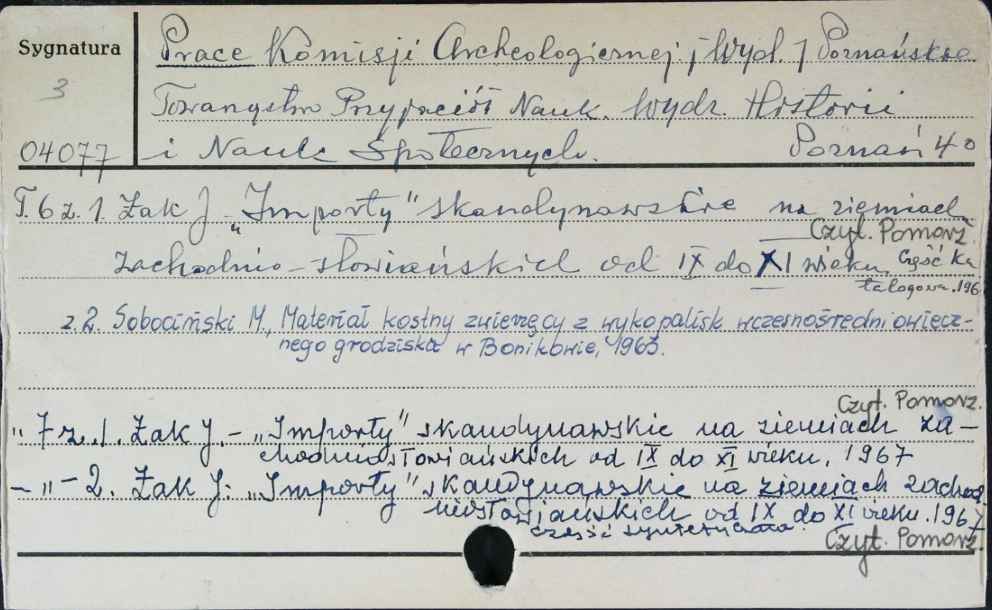 Sygnatura
3
04077
Prace Komisji Archeologicznej. [Wyd.] Poznańskie
Towarzystwo Przyjaciół Nauk. Wydz. Historii
i Nauk Społecznych. Poznań 4°
T. 6 z. 1. Żak J. „Importy" skandynawskie na ziemiach
Czyt. Pomorz.
zachodnio-słowiańskich od IX do XI wieku. Część Ka
talogowa. 196
z. 2. Sobociński M., Materiał kostny zwierzęcy z wykopalisk wczesnośredniowiecz-
nego grodziska w Bonikowie, 1963.
Czyt. Pomorz.
" 7 z. 1. Żak J. - „Importy" skandynawskie na ziemiach za-
chodniosłowiańskich od IX do XI wieku. 1967
- " - 2. Żak J: „Importy" skandynawskie na ziemiach zachod
niosłowiańskich od IX do XI wieku. 1967
część syntetyczna
Czyt. Pomorz.